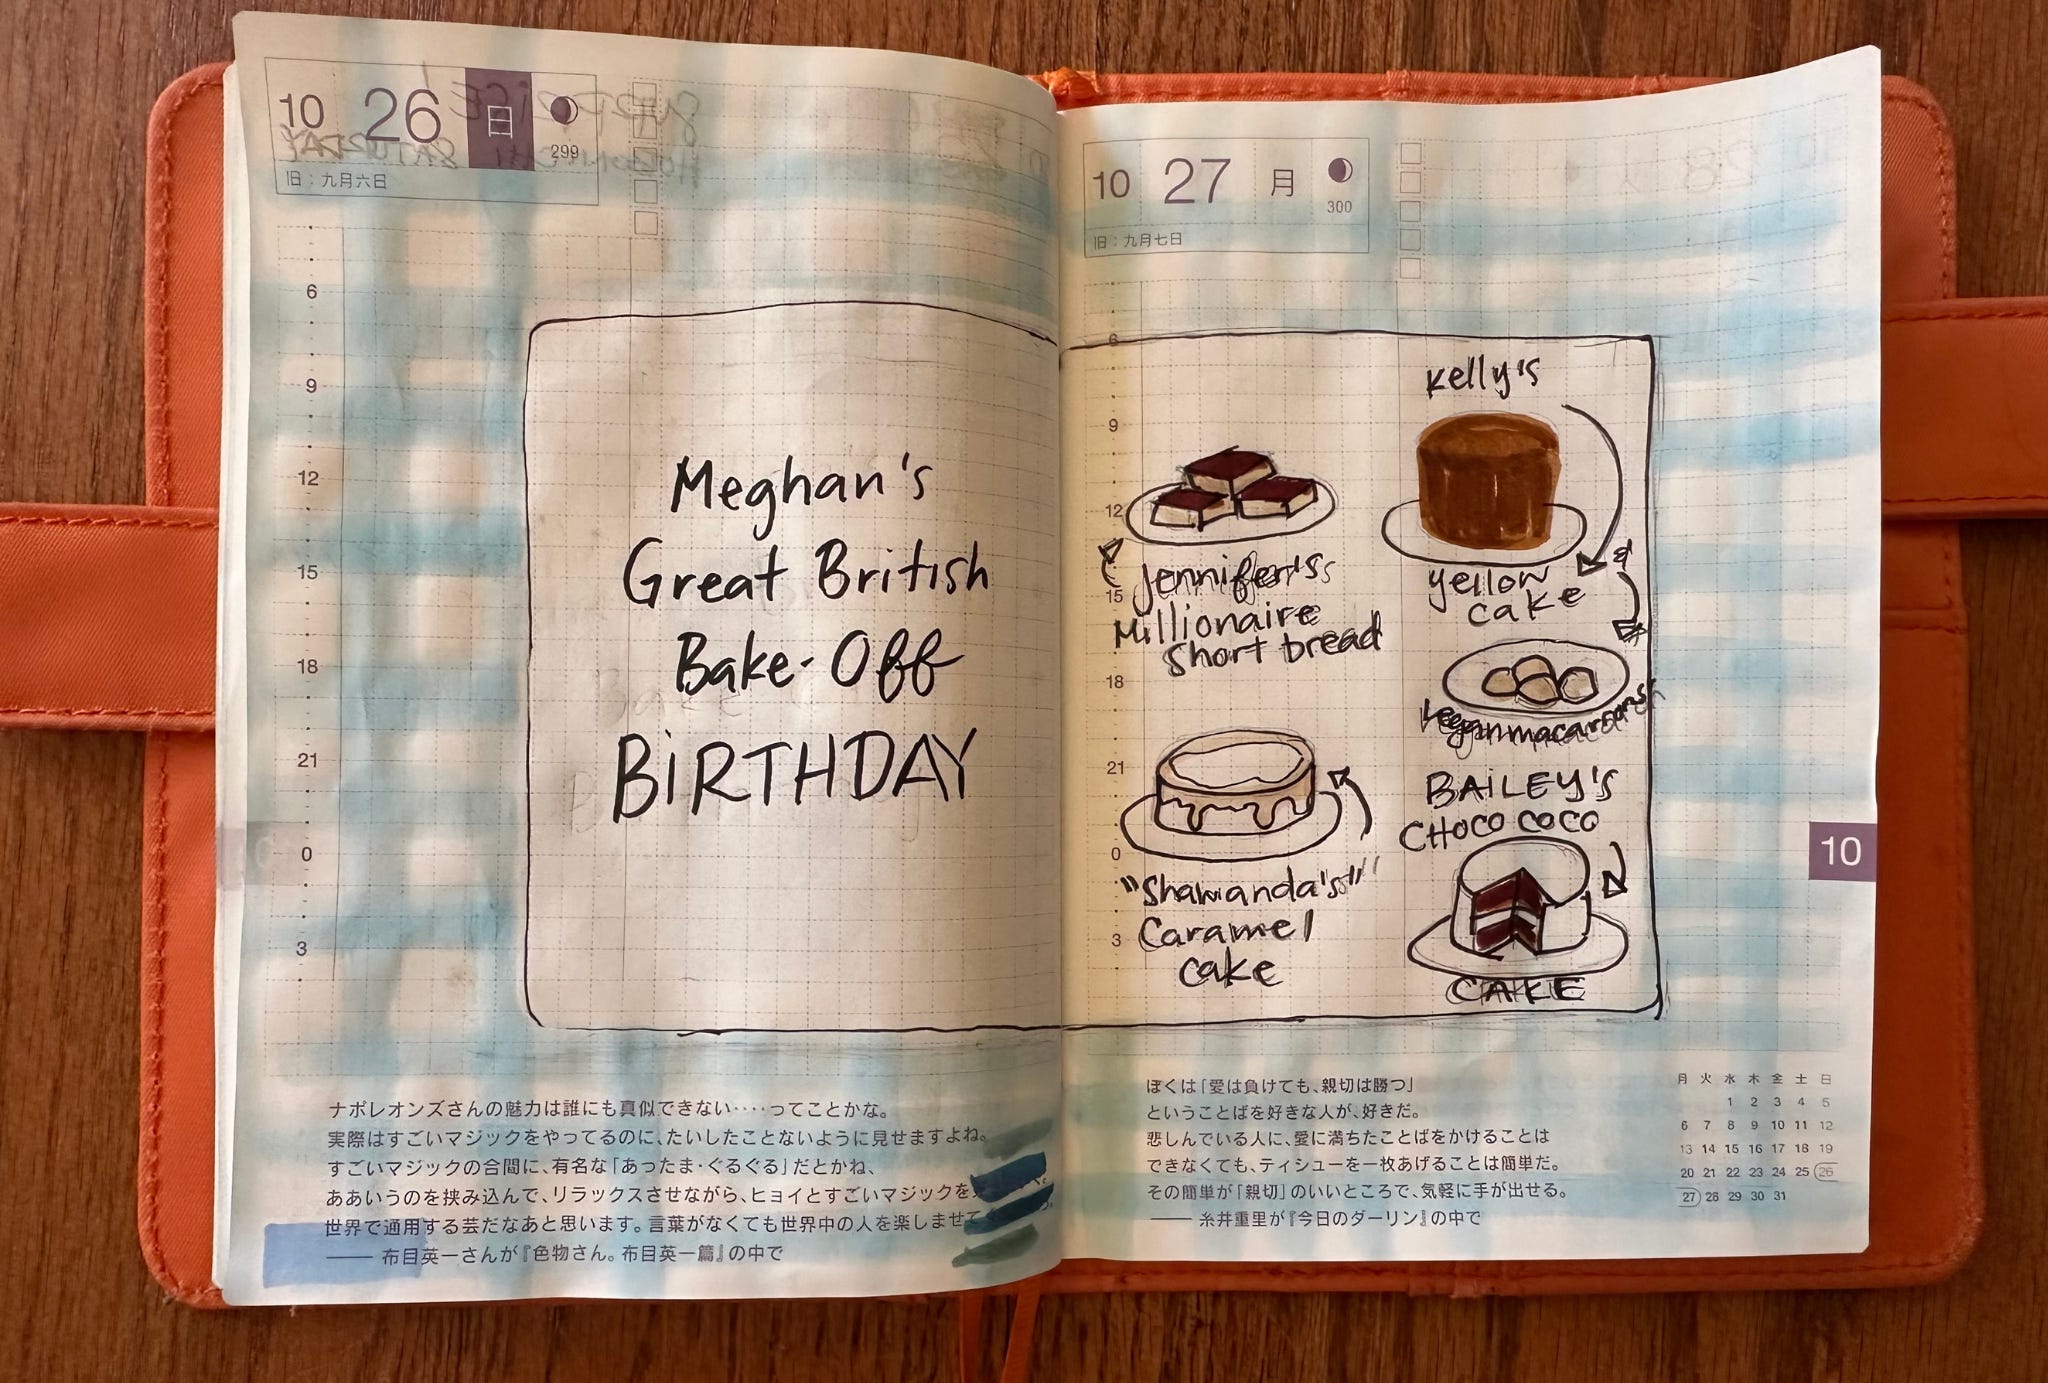 10 26 日
299
旧：九月六日
6
9
12
15
18
21
0
3
Meghan's
Great British
Bake-Off
BiRTHDAY
ナポレオンズさんの魅力は誰にも真似できない‥‥ってことかな。
実際はすごいマジックをやってるのに、たいしたことないように見せますよね。
すごいマジックの合間に、有名な「あったま・ぐるぐる」だとかね、
ああいうのを挟み込んで、リラックスさせながら、ヒョイとすごいマジックを
世界で通用する芸だなあと思います。言葉がなくても世界中の人を楽しませて
—— 布目英一さんが『色物さん。布目英一篇』の中で
10 27 月
300
旧：九月七日
6
9
12
15
18
21
0
3
Kelly's
yellow
cake
&
Jennifer's
Millionaire
Short bread
Vegan macaroons
BAiLEY'S
CHOCO COCO
CAKE
"Shawanda's"
Caramel
cake
10
ぼくは「愛は負けても、親切は勝つ」
ということばを好きな人が、好きだ。
悲しんでいる人に、愛に満ちたことばをかけることは
できなくても、ティシューを一枚あげることは簡単だ。
その簡単が「親切」のいいところで、気軽に手が出せる。
—— 糸井重里が『今日のダーリン』の中で
月 火 水 木 金 土 日
1 2 3 4 5
6 7 8 9 10 11 12
13 14 15 16 17 18 19
20 21 22 23 24 25 26
27 28 29 30 31